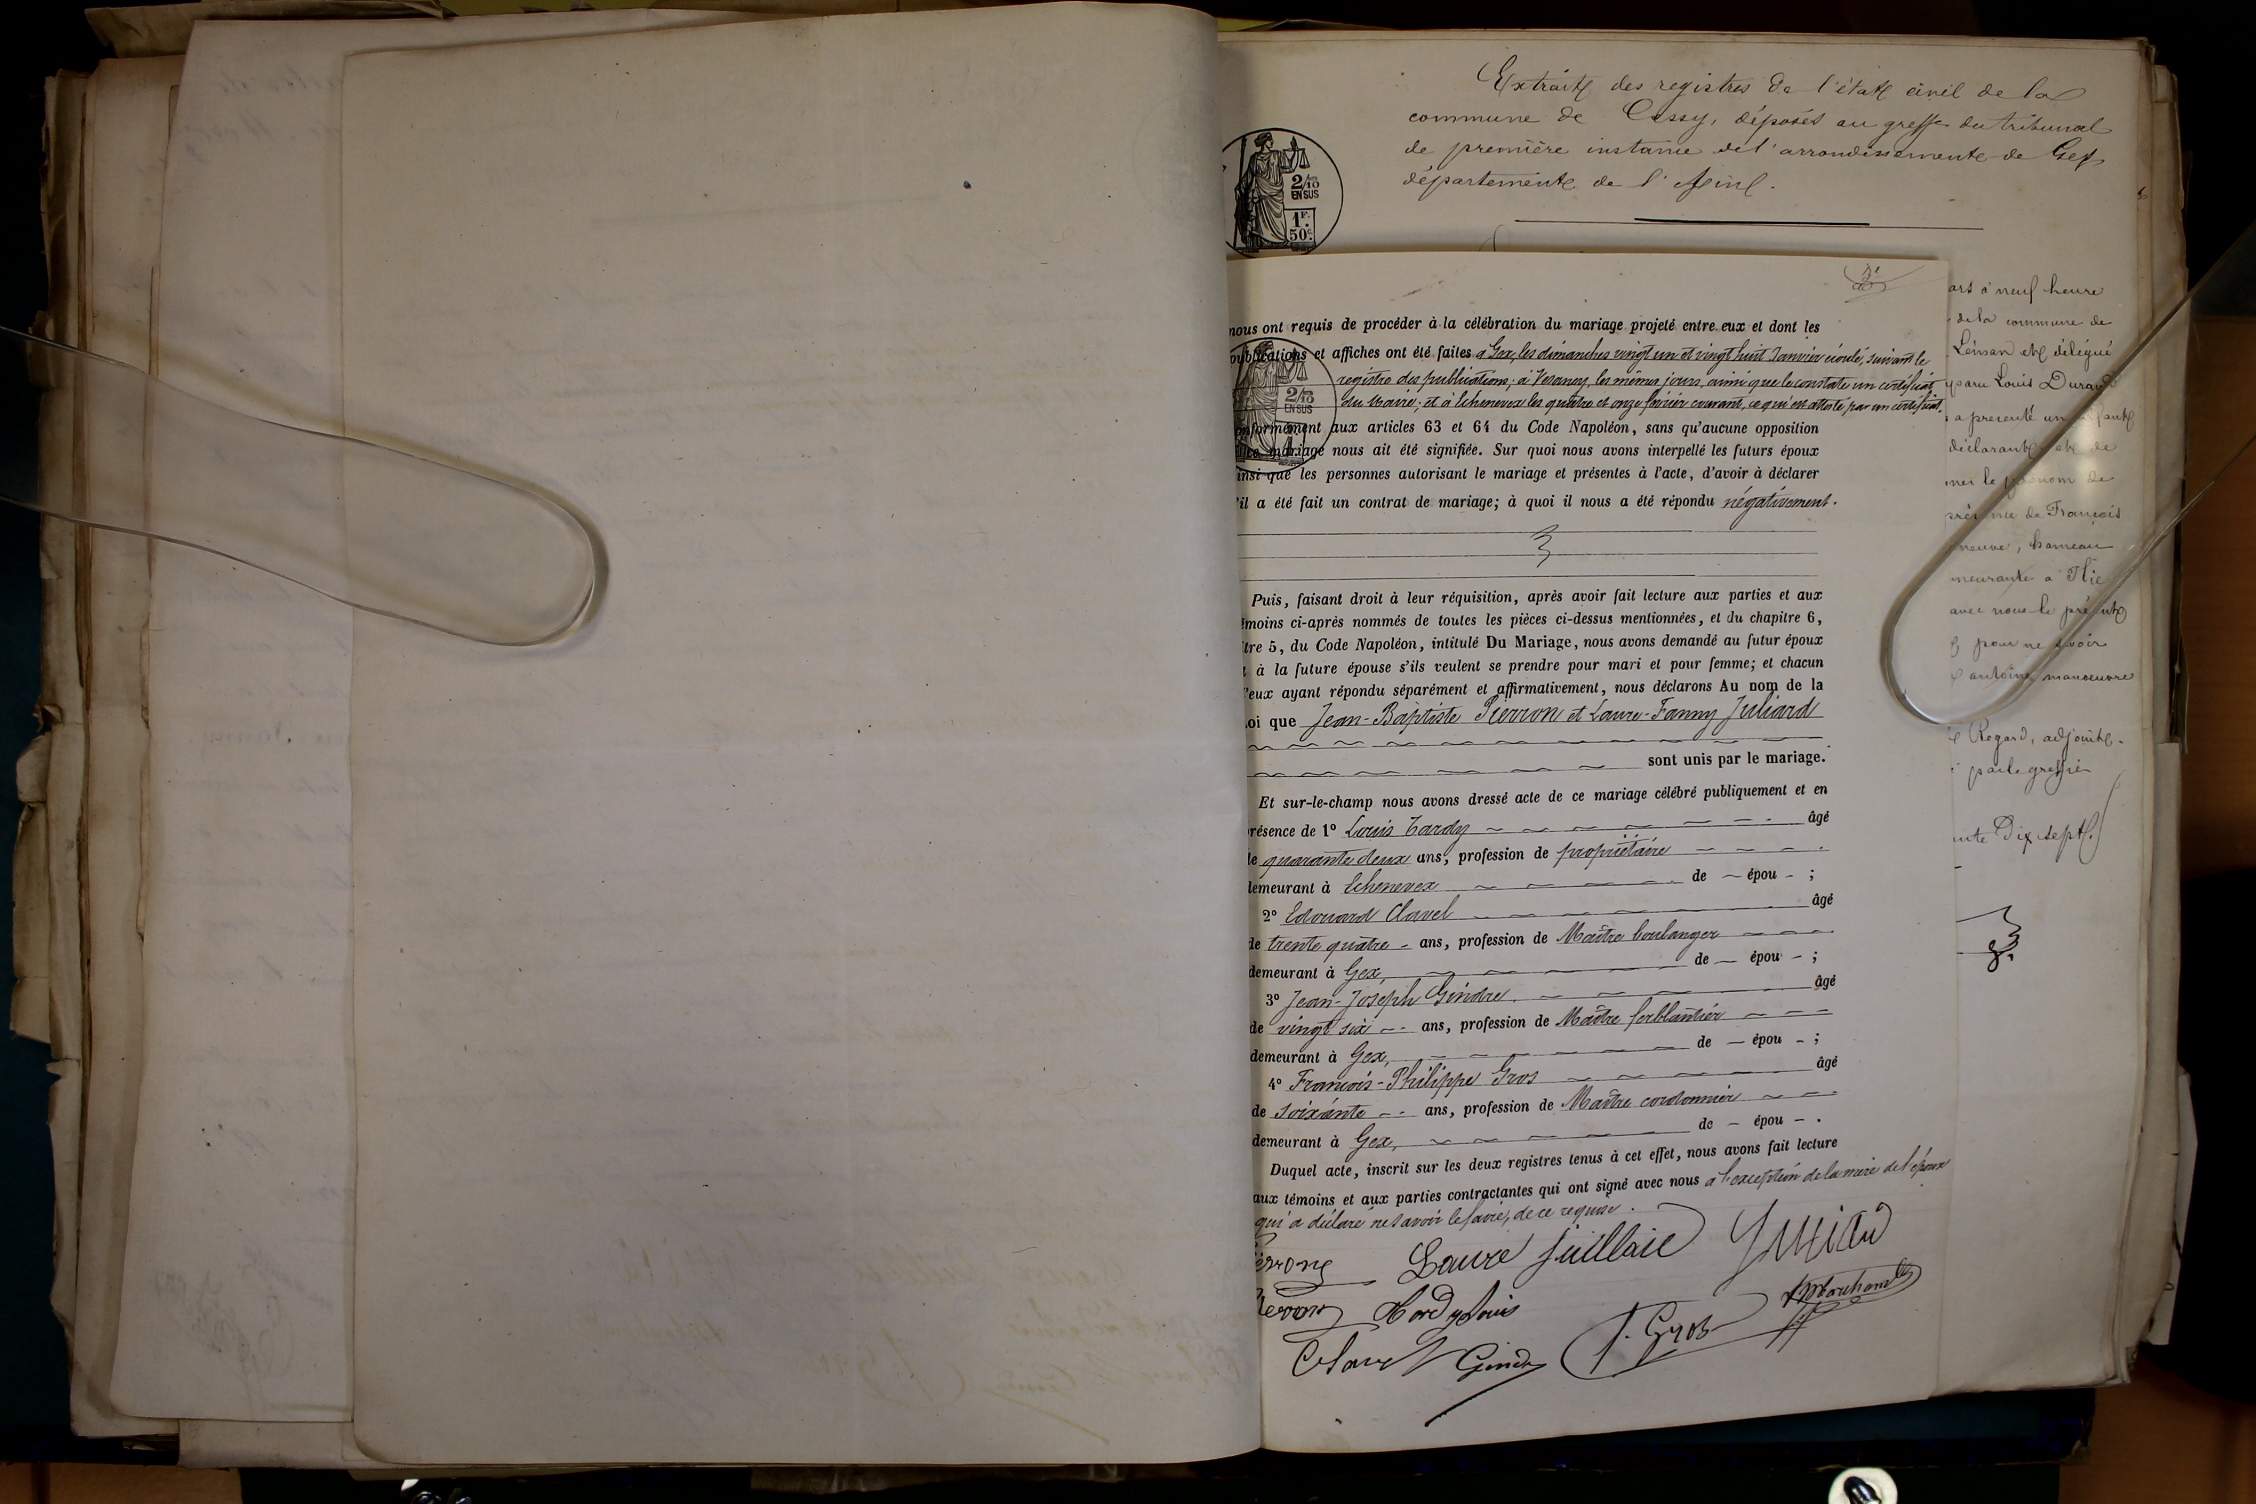 Extrait des registres de l'état civil de la
commune de Cessy, déposés au greffe du tribunal
de première instance de l'arrondissement de Gex
département de l'Ain.
2/10
EN SUS
1F.
50c.
nous ont requis de procéder à la célébration du mariage projeté entre eux et dont les
publications et affiches ont été faites à Gex, les dimanches vingt un et vingt huit Janvier écoulé, suivant le
registre des publications; à Vesancy, les mêmes jours, ainsi que le constate un certificat
du Maire; et à Echenevex les quatre et onze février courant, ce qui est attesté par un certificat.
2/10
EN SUS
conformément aux articles 63 et 64 du Code Napoléon, sans qu'aucune opposition
mariage nous ait été signifiée. Sur quoi nous avons interpellé les futurs époux
insi que les personnes autorisant le mariage et présentes à l'acte, d'avoir à déclarer
'il a été fait un contrat de mariage; à quoi il nous a été répondu négativement.
Puis, faisant droit à leur réquisition, après avoir fait lecture aux parties et aux
émoins ci-après nommés de toutes les pièces ci-dessus mentionnées, et du chapitre 6,
itre 5, du Code Napoléon, intitulé Du Mariage, nous avons demandé au futur époux
t à la future épouse s'ils veulent se prendre pour mari et pour femme; et chacun
'eux ayant répondu séparément et affirmativement, nous déclarons Au nom de la
oi que Jean-Baptiste Pierron et Laure-Fanny Juliard
sont unis par le mariage.
Et sur-le-champ nous avons dressé acte de ce mariage célébré publiquement et en
résence de 1° Louis Tardy âgé
de quarante deux ans, profession de propriétaire
demeurant à Echenevex de — épou - ;
2° Edouard Clavel âgé
de trente quatre - ans, profession de Maître boulanger
demeurant à Gex, de — épou - ;
3° Jean-Joseph Gindre âgé
de vingt six -- ans, profession de Maître ferblantier
demeurant à Gex, de — épou - ;
4° François-Philippe Gros âgé
de soixante -- ans, profession de Maître cordonnier
demeurant à Gex, de — épou - .
Duquel acte, inscrit sur les deux registres tenus à cet effet, nous avons fait lecture
aux témoins et aux parties contractantes qui ont signé avec nous à l'exception de la mère de l'époux
qui a déclaré ne savoir le faire, de ce requise.
Laure Juillard
Tardy Louis
Clavel Gindre f. Gros
ars à neuf heure
de la commune de
Léman et délégué
paru Louis Durand
a presenté un
déclarant et de
ner le prénom de
de François
neuve, hameau
meurant à
avec nous le présent
pour ne savoir
antoine, manoeuvre
Regard, adjoint.
par le greffier
nte Dix sept.